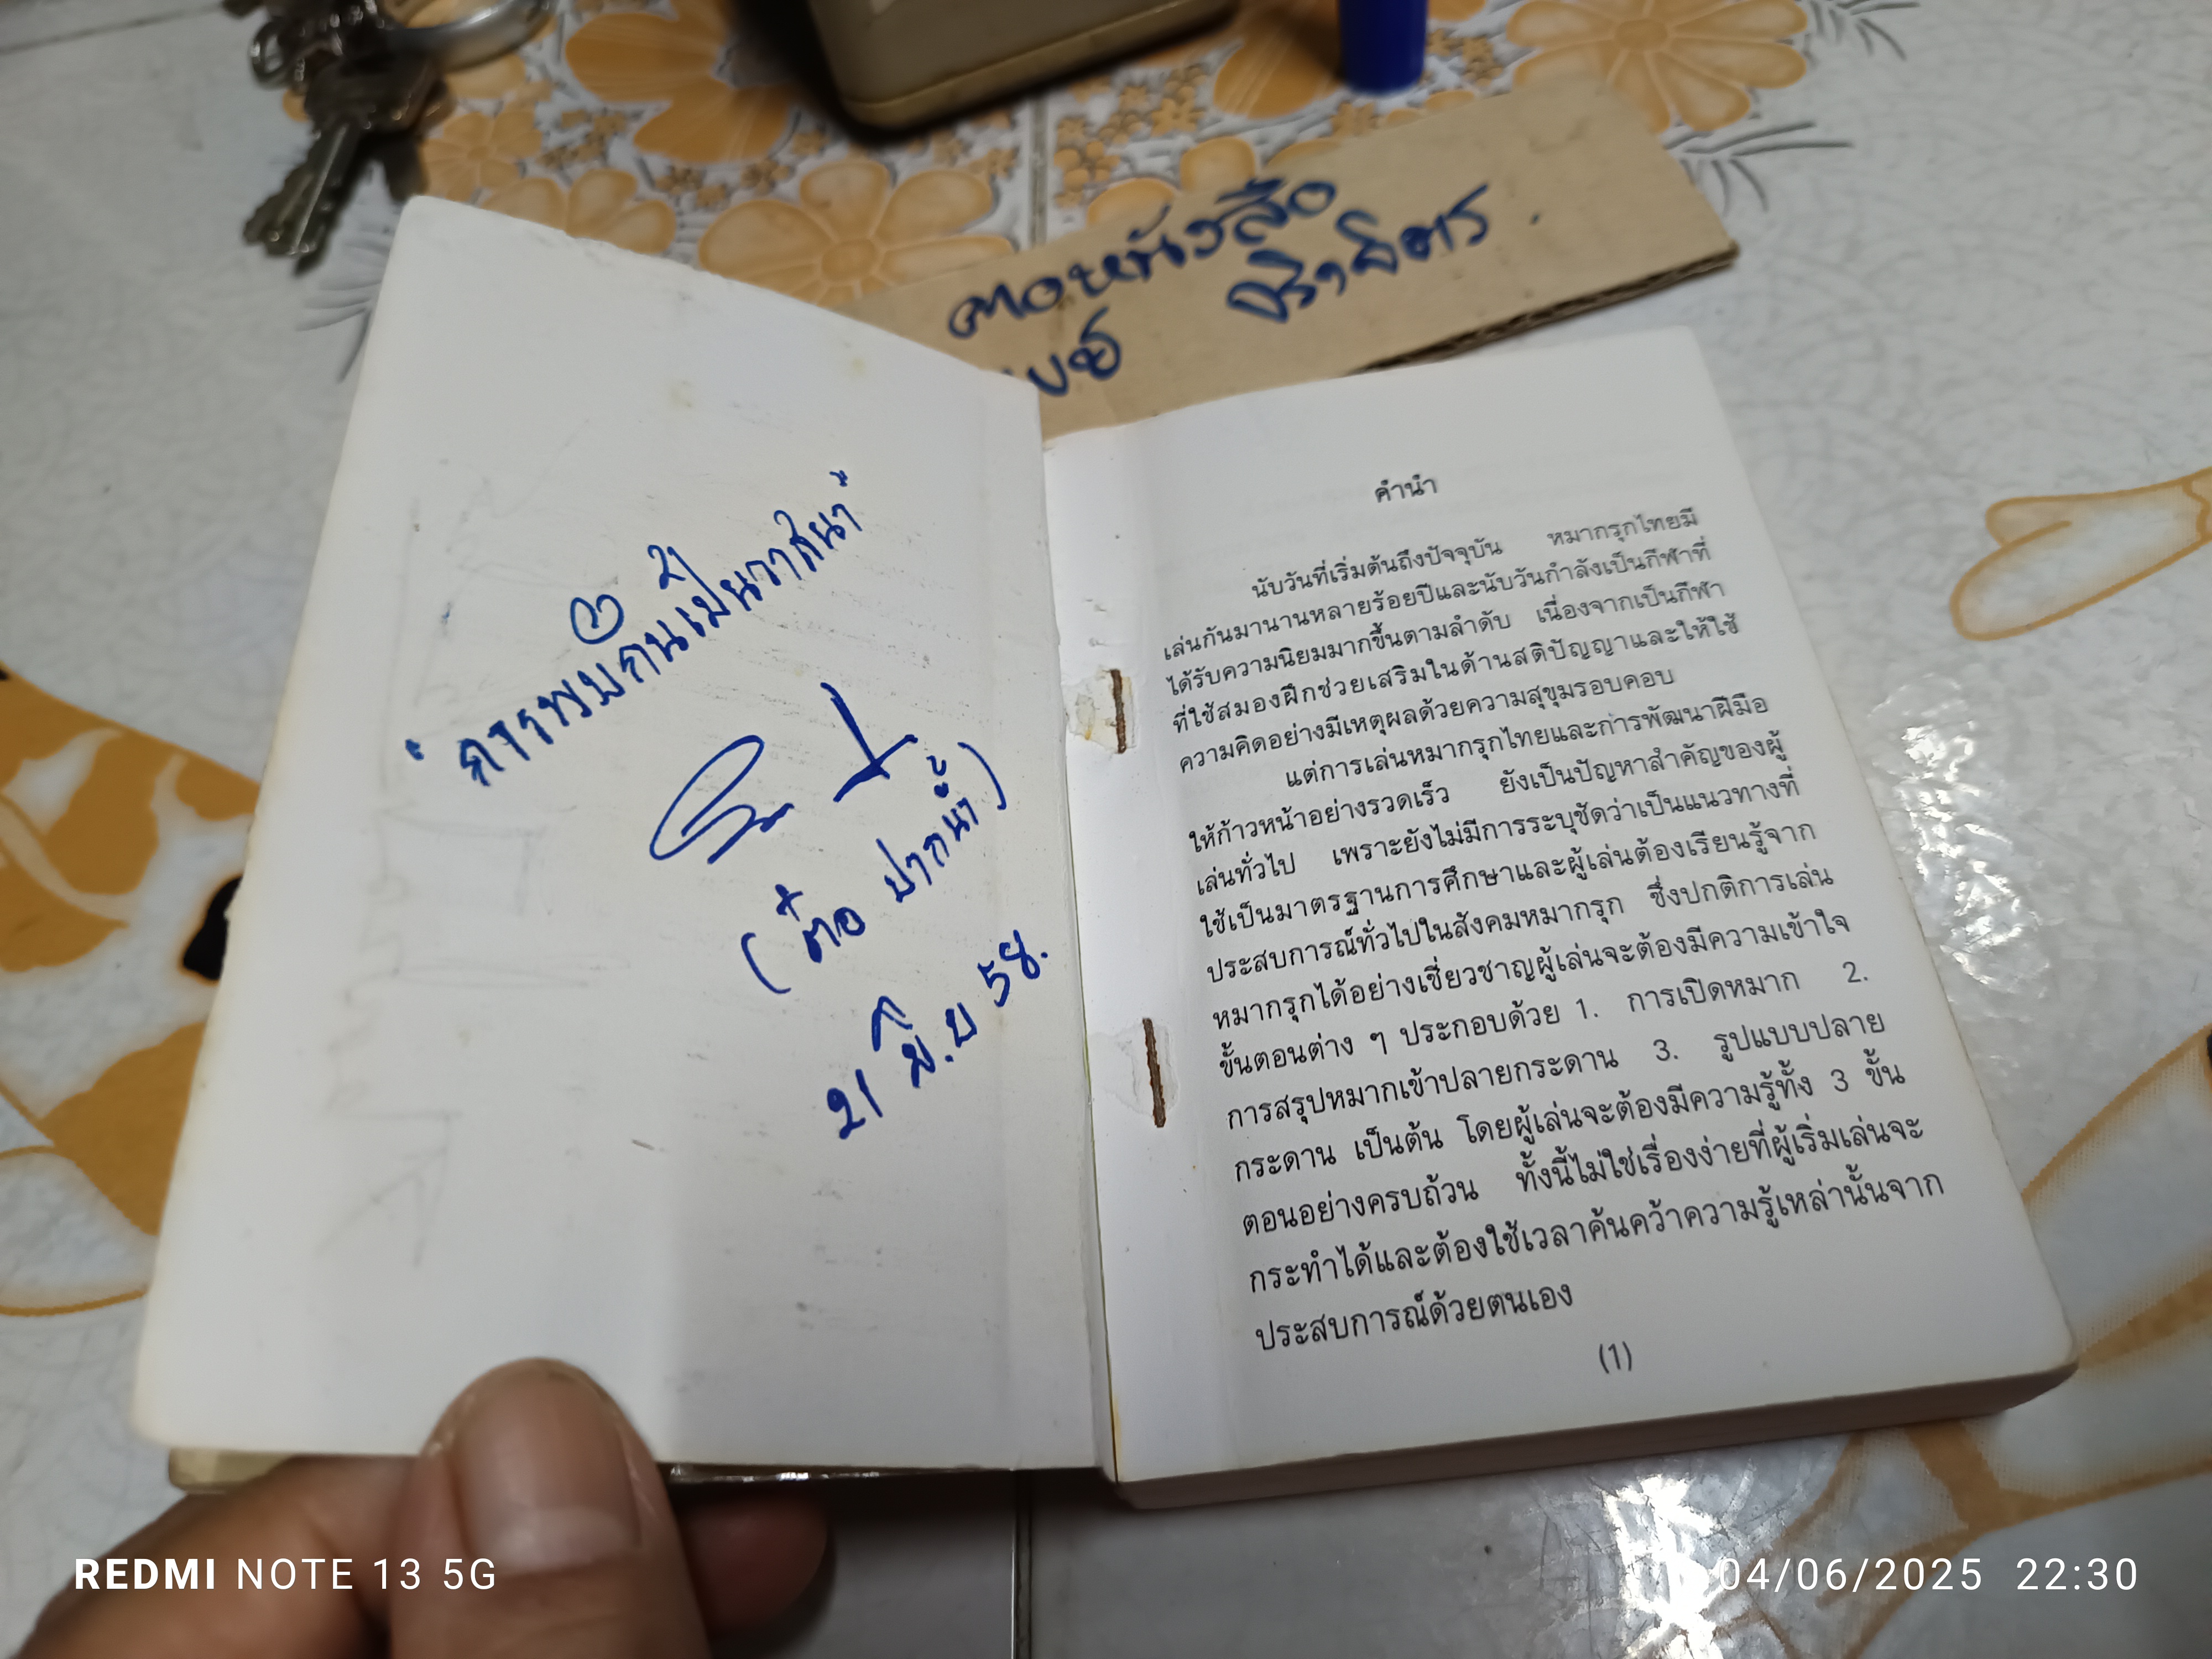 ตอหนังสือ
เบย์ จิราจิตร
"การพบกันเป็นวาสนา"
(ต๋อ ปากน้ำ)
21 มิ.ย 58.
คำนำ
นับวันที่เริ่มต้นถึงปัจจุบัน หมากรุกไทยมี
เล่นกันมานานหลายร้อยปีและนับวันกำลังเป็นกีฬาที่
ได้รับความนิยมมากขึ้นตามลำดับ เนื่องจากเป็นกีฬา
ที่ใช้สมองฝึกช่วยเสริมในด้านสติปัญญาและให้ใช้
ความคิดอย่างมีเหตุผลด้วยความสุขุมรอบคอบ
แต่การเล่นหมากรุกไทยและการพัฒนาฝีมือ
ให้ก้าวหน้าอย่างรวดเร็ว ยังเป็นปัญหาสำคัญของผู้
เล่นทั่วไป เพราะยังไม่มีการระบุชัดว่าเป็นแนวทางที่
ใช้เป็นมาตรฐานการศึกษาและผู้เล่นต้องเรียนรู้จาก
ประสบการณ์ทั่วไปในสังคมหมากรุก ซึ่งปกติการเล่น
หมากรุกได้อย่างเชี่ยวชาญผู้เล่นจะต้องมีความเข้าใจ
ขั้นตอนต่าง ๆ ประกอบด้วย 1. การเปิดหมาก 2.
การสรุปหมากเข้าปลายกระดาน 3. รูปแบบปลาย
กระดาน เป็นต้น โดยผู้เล่นจะต้องมีความรู้ทั้ง 3 ขั้น
ตอนอย่างครบถ้วน ทั้งนี้ไม่ใช่เรื่องง่ายที่ผู้เริ่มเล่นจะ
กระทำได้และต้องใช้เวลาค้นคว้าความรู้เหล่านั้นจาก
ประสบการณ์ด้วยตนเอง
(1)
REDMI NOTE 13 5G
04/06/2025 22:30